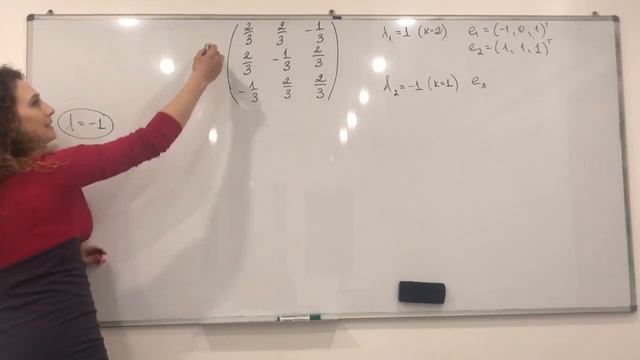 2/3 2/3 -1/3
2/3 -1/3 2/3
-1/3 2/3 2/3
λ₁=1 (k=2) e₁ = (-1, 0, 1)ᵀ
e₂ = (1, 1, 1)ᵀ
λ₂=-1 (k=1) e₃
λ=-1